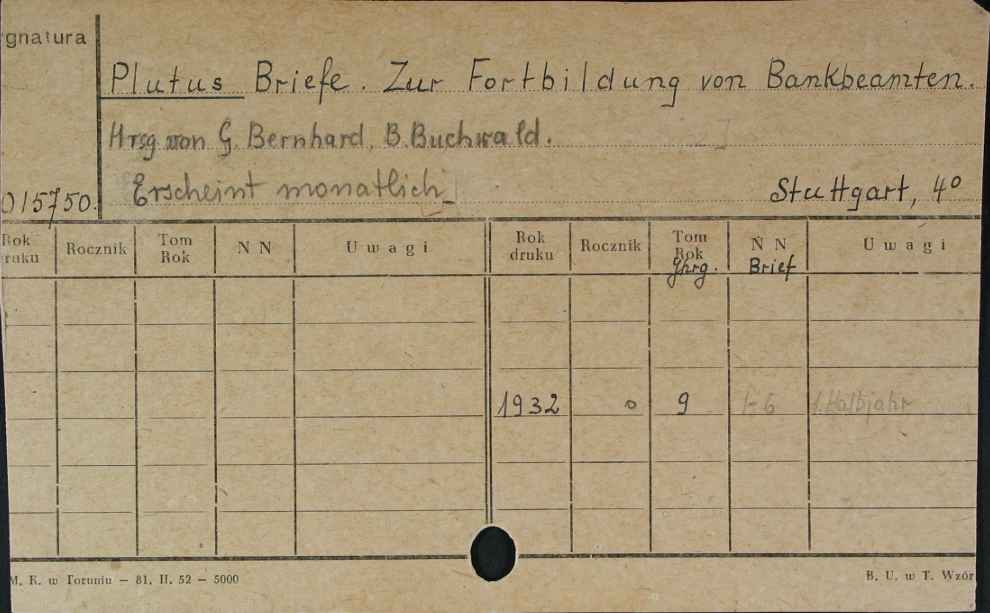 gnatura
Plutus Briefe. Zur Fortbildung von Bankbeamten.
Hrsg. von G. Bernhard, B. Buchwald.
Erscheint monatlich
015750. Stuttgart, 4°
Rok druku Rocznik Tom Rok N N Uwagi Rok druku Rocznik Tom Rok Jhrg. N N Brief Uwagi
1932 o 9 1-6 1. Halbjahr
M. K. w Toruniu — 81. II. 52 — 5000 B. U. w T. Wzór